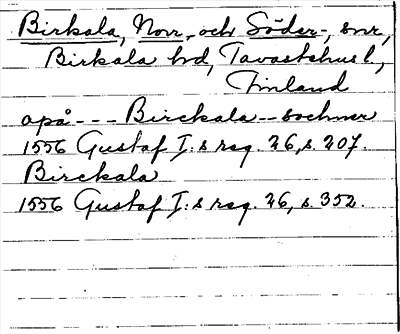 Birkala, Norr- och Söder-, snr,
Birkala hd, Tavastehus l.,
Finland
opå --- Birckala -- sochner
1556 Gustaf I:s reg. 26, s. 207.
Birckala
1556 Gustaf I:s reg. 26, s. 352.